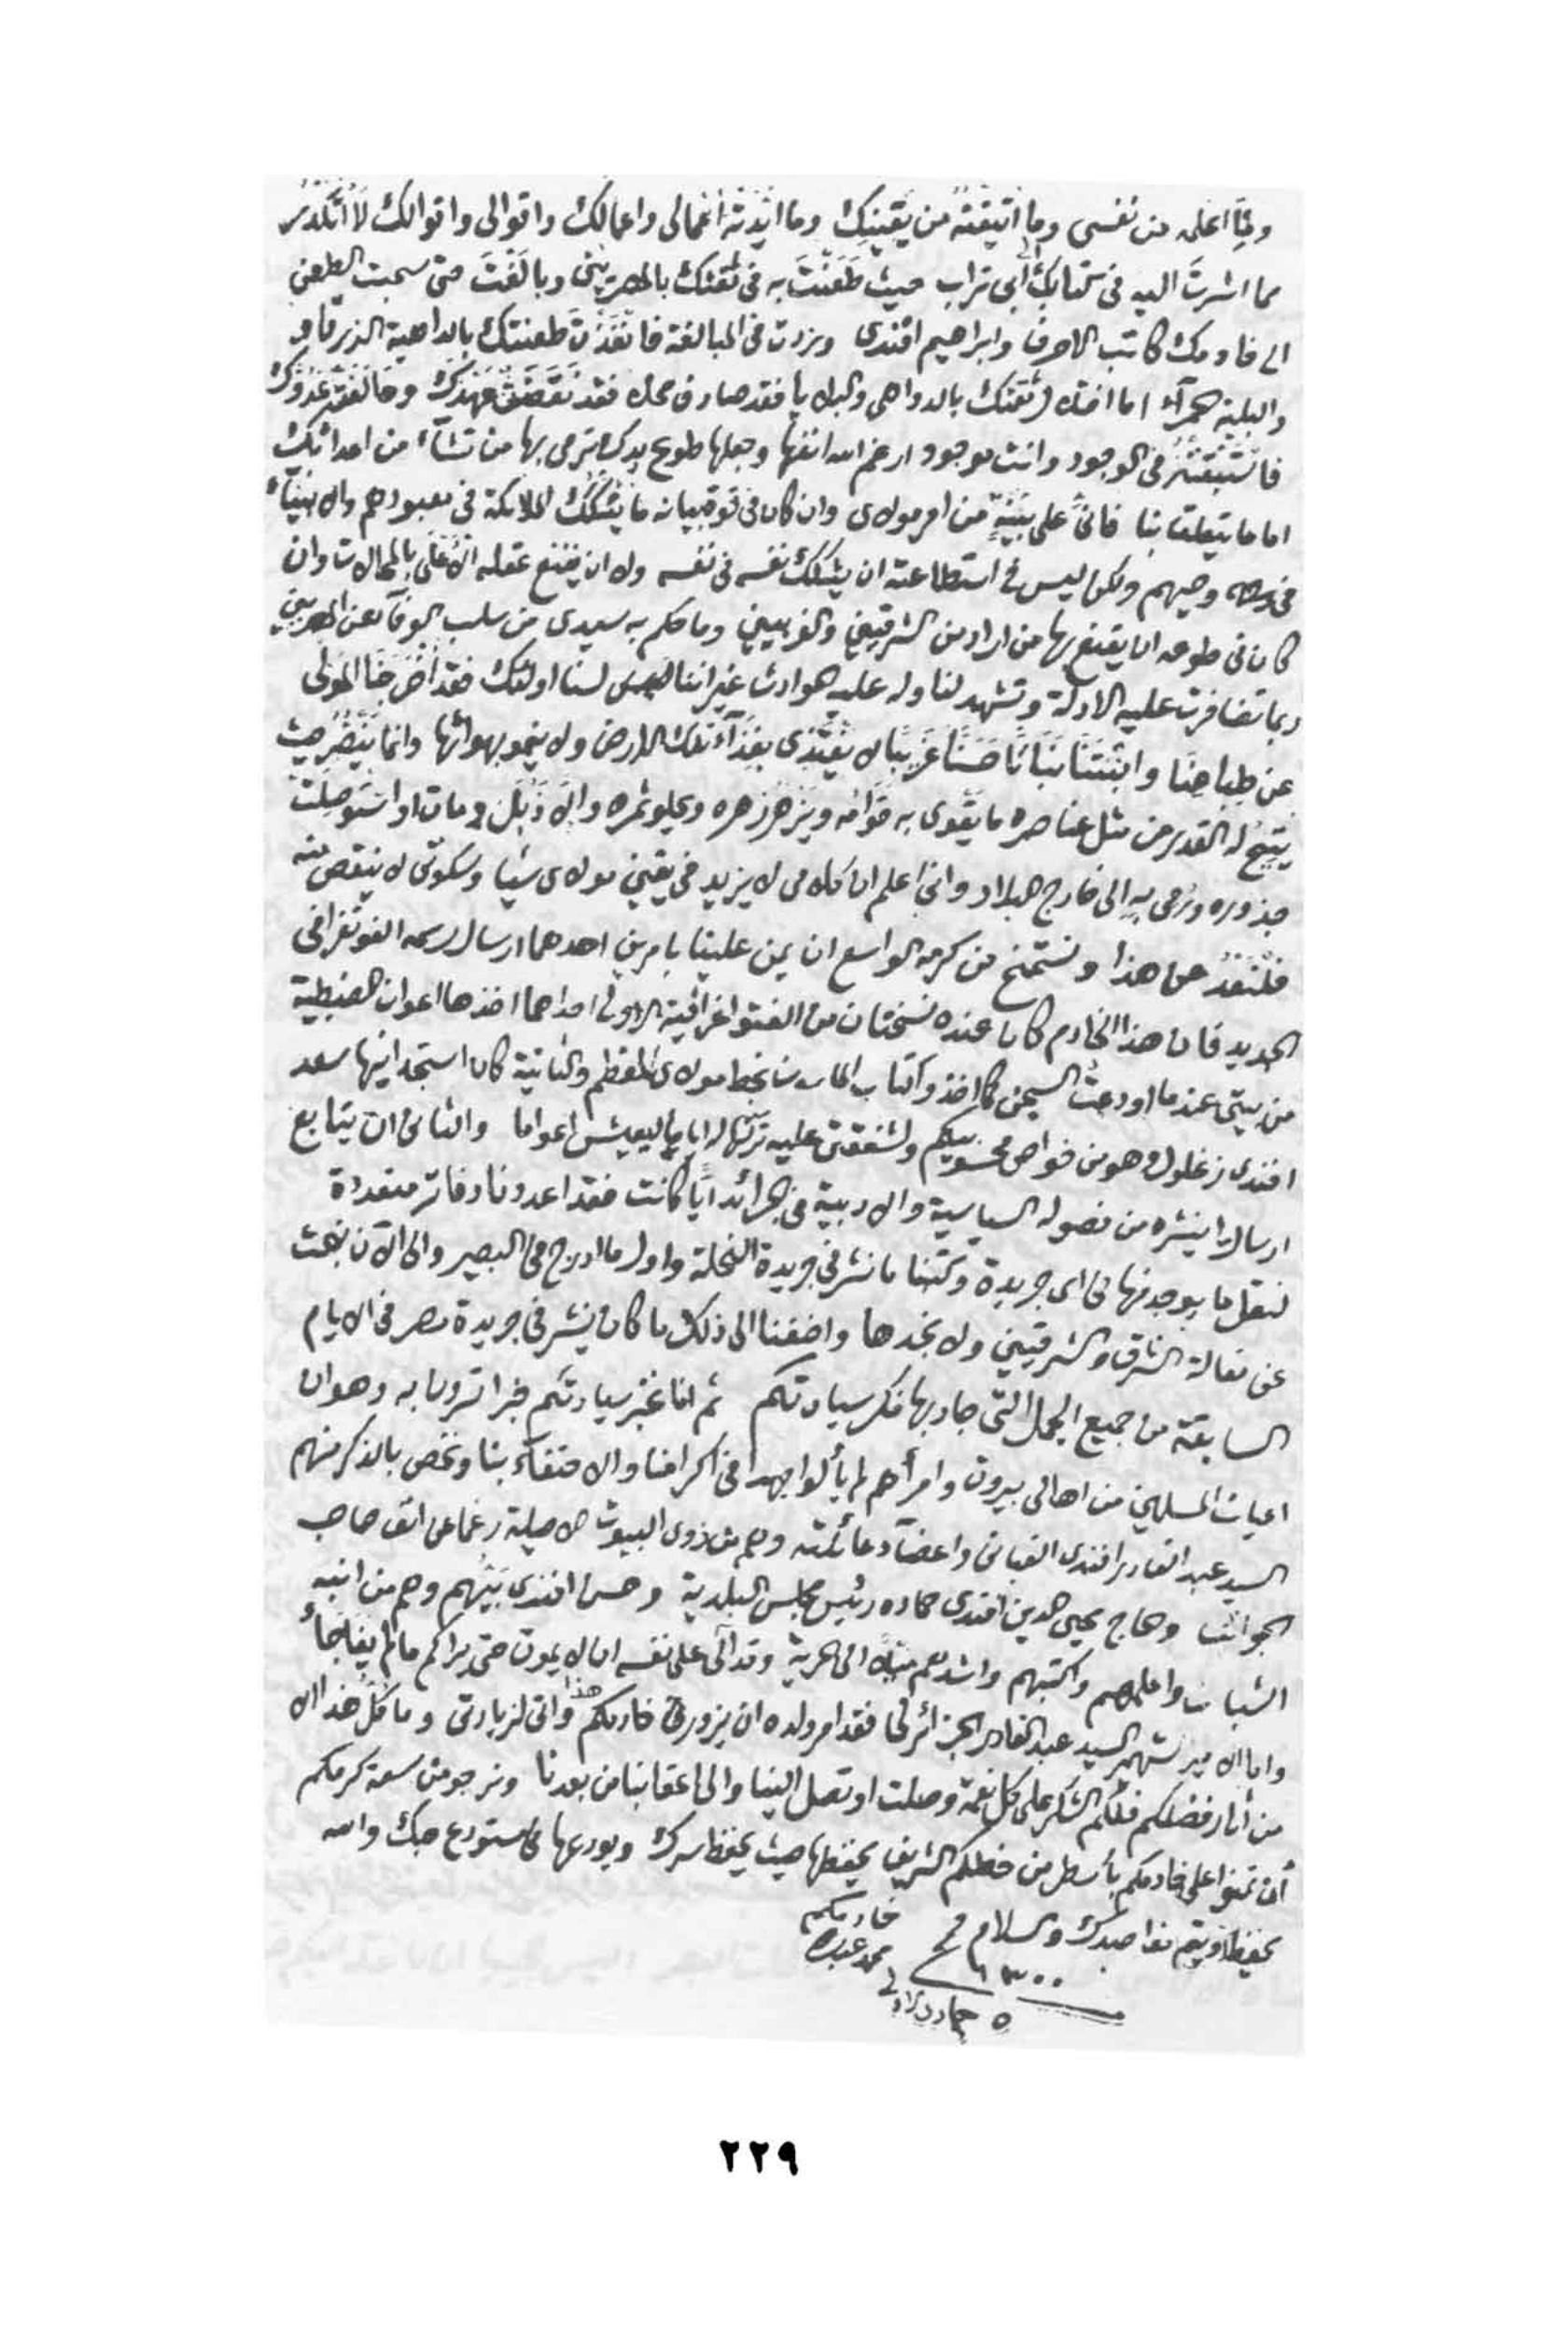 ولما اعلمه من نفسى وما اتيقنه من يقينك وما ايدته افعالى واعمالك واقوالى واقوالك لا اتكدر
مما اشرت اليه فى كتابك الى ابى تراب حيث طعنت به فى ثقتك بالمصريين وبالغت حتى سحبت الطعن
الى خادمك كاتب الاحرف وابراهيم افندى وزدت فى المبالغة طعنتك بالداهية الزرقاء
والبلية الحمرآء اما اختلال ثقتك بالدواهى والبلايا فقد صادف محله فقد نقضت عهدك وحالفت عدوك
فى الوجود وانت موجود ارغم الله انفها وجعلها طوع يدك ترمى بها من تشآء من اعدائك
اما ما يتعلق بنا فانى على بينة من امر مولاى وان كان فى قوة بيانه ما يشكك الملائكة فى معبودهم والانبيآء
فى وحيهم ولكن ليس فى استطاعته ان يشكك نفسه فى نفسه ولا ان يقنع عقله الاعلى بالمحالات وان
كان فى طوعه ان يقنع بها من اراد من الشرقيين والغربيين وما حكم به سيدى من سلب الوفآء عن المصريين
ربما تضافرت عليه الادلة وتشهد لنا وله عليه الحوادث غير اننا لسنا اولئك فقد اخرجنا المولى
عن طباعنا وانبتنا نباتا حسنا غريبا لا يغتذى بغذآء تلك الارض ولا ينمو بهوائها وانما ينضر حيث
يتيح له القدير من مثل عناصره ما يقوى به قوامه ويزهر زهره ويحلو ثمره والا ذبل ومات او استوصلت
جذوره ورمى به الى خارج البلاد وانى اعلم ان كلامى لا يزيد فى يقين مولاى شيا وسكوتى لا ينقص منه
فلنعد عن هذا ونستمنح من كرمه الواسع ان يمن علينا بامرين احدهما ارسال رسمه الفوتغرافى
الجديد فان هذا الخادم كان عنده نسختان من الفتواغرافية الاولى احداهما اخذها اعوان الضبطية
من بيتى عندما اودعت السجن كما اخذوا كتاب الماسن بخط مولاى المعظم والثانية كان استجدانيها سعد
افندى زغلول وهو من خواص محسوبيكم ولشفقتى عليه تركتها له ايام ليعيش اعواما والثانى ان يتابع
ارسال ما ينشره من فصوله السياسية والادبية فى الجرائد ايا كانت فقد اعددنا دفاتر متعددة
لنقل ما يوجد منها فى اى جريدة وكتبنا ما نشر فى جريدة النحلة واول ما ادرج فى البصير والى الآن نبحث
عن مقالة الشرق والشرقيين ولا نجدها واضفنا الى ذلك ما كان ينشر فى جريدة مصر فى الايام
السابقة من جميع الجمل التى جاد بها فكر سيادتكم ثم انا نخبر سيادتكم خبرا تسرون به وهو ان
اعيان المسلمين من اهالى بيروت وامرأهم لم يألوا جهدا فى اكرامنا والاحتفآء بنا ونخص بالذكر منهم
السيد عبد القادر افندى القبانى واعضآء عائلته وهم من ذوى البيوت الاصيلة رغما عن انف صاحب
الجوائب وحاج محيى الدين افندى حماده رئيس مجلس البلدية وحسن افندى بيهم وهم من انبه
الشبان واعلمهم واكتبهم واشدهم ميلا الى الحرية وقد آلى على نفسه ان لا يموت حتى يراكم ما لم يفاجأ
واما الامير الشهير السيد عبد القادر الجزائرلى فقد امر ولده ان يزورنى خادمكم هذا واتى لزيارتى وما كل هذا الا
من آثار فضلكم فلكم الشكر على كل نعمة وصلت او تصل الينا والى اعقابنا من بعدنا ونرجو من سعة كرمكم
أن تمنوا على خادمكم بأسطر من خطكم الشريف يحفظها حيث يحفظ سرك ويودعها فى مستودع حبك والله
يحفظك ويتم مقاصدك والسلام
خادمكم
محمد عبده
١٣٠٠
٥ جمادى الاولى
٢٢٩